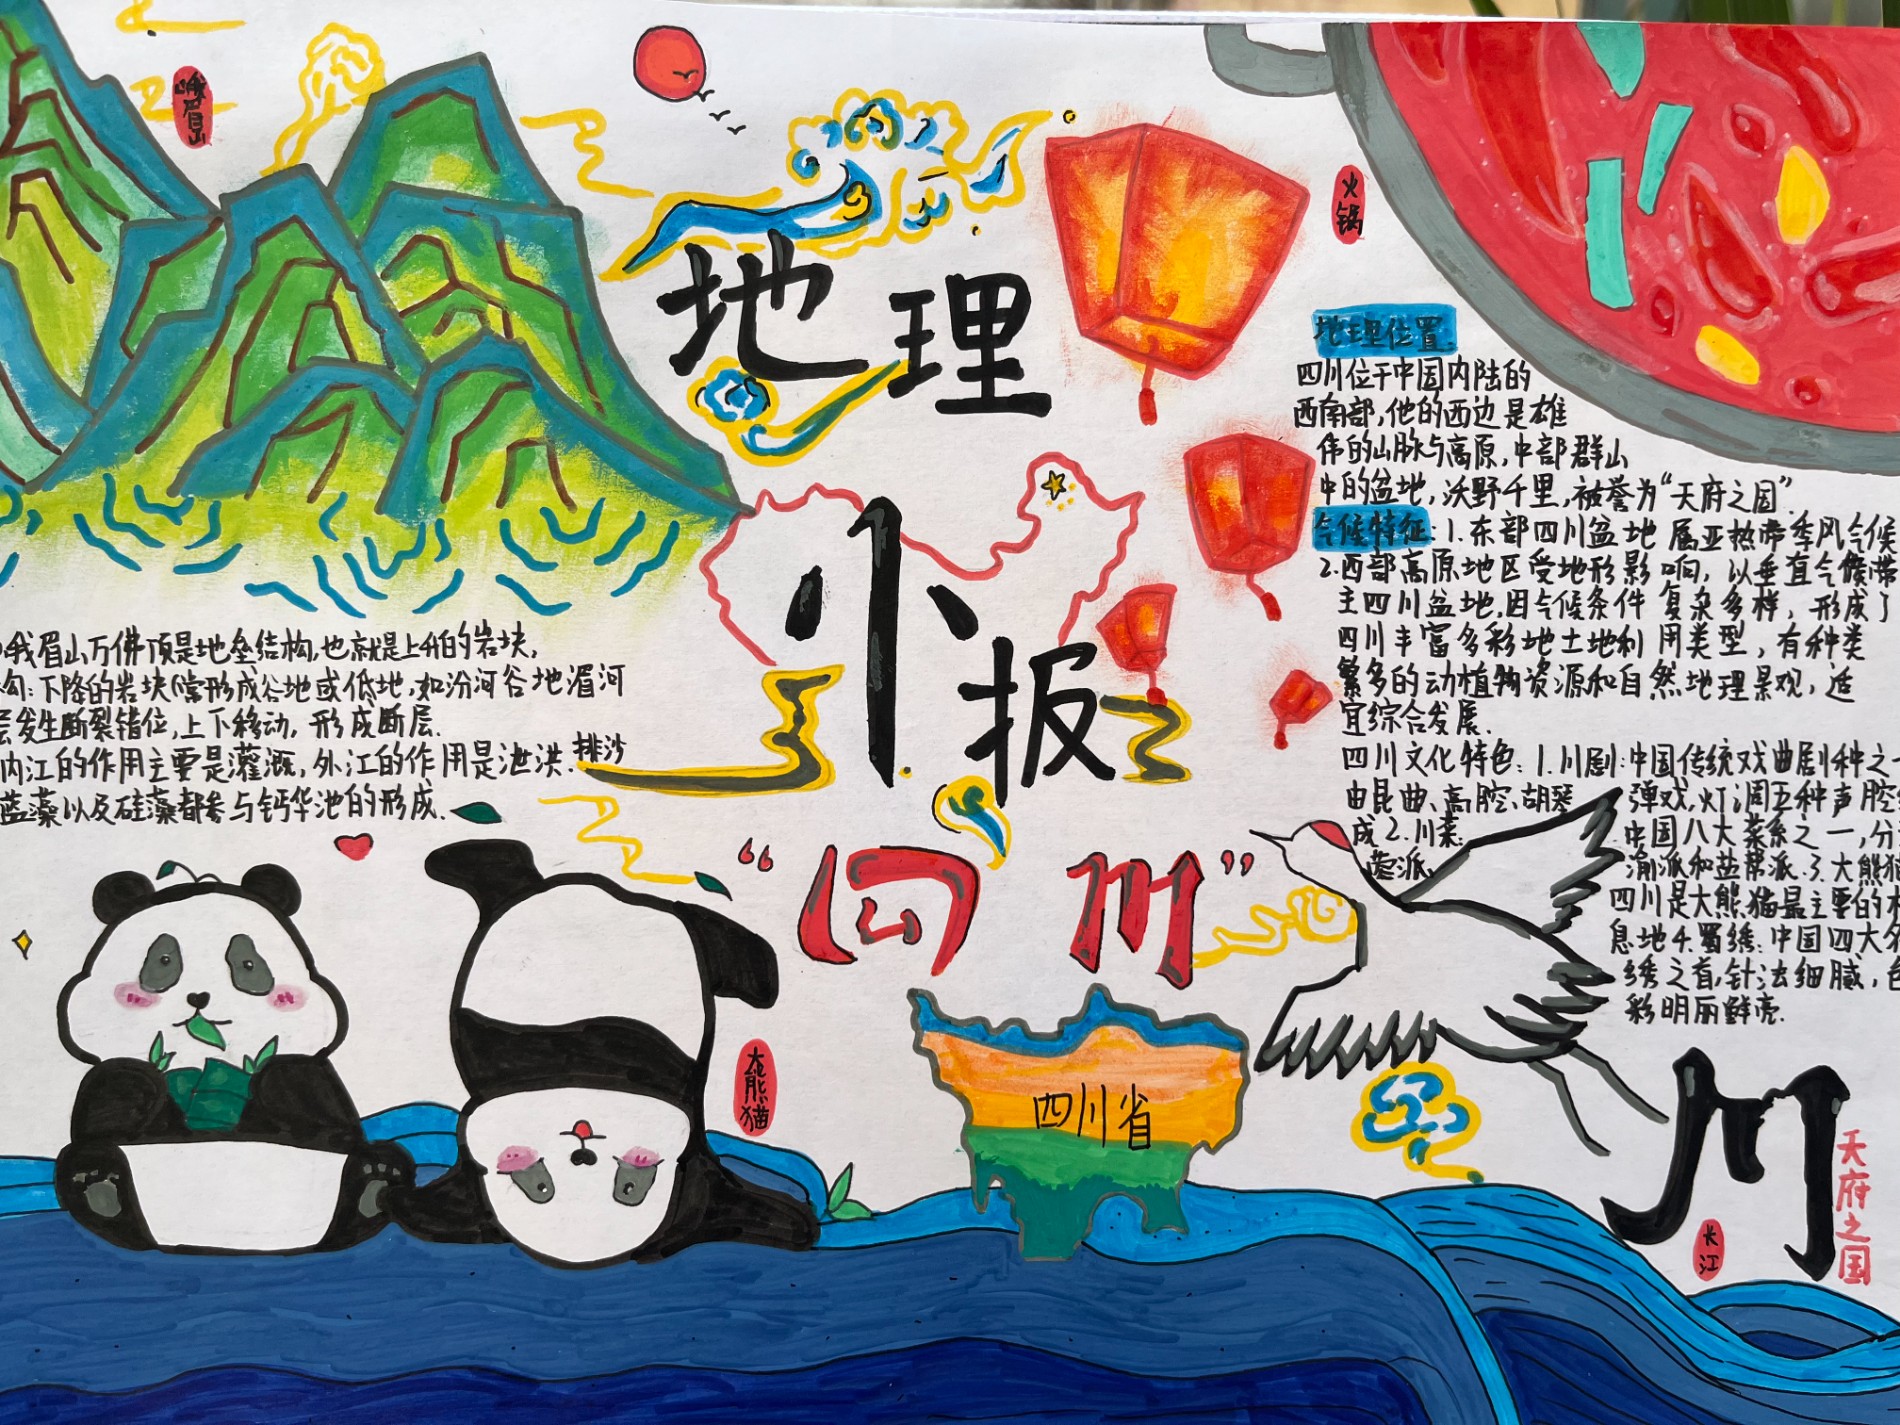 峨眉山
火锅
地理
小报
“四川”
地理位置
四川位于中国内陆的
西南部,他的西边是雄
伟的山脉与高原,中部群山
中的盆地,沃野千里,被誉为“天府之国”
气候特征:1.东部四川盆地属亚热带季风气候
2.西部高原地区受地形影响,以垂直气候带
主四川盆地.因气候条件复杂多样,形成了
四川丰富多彩地土地利用类型,有种类
繁多的动植物资源和自然地理景观,适
宜综合发展.
四川文化特色:1.川剧:中国传统戏曲剧种之一
由昆曲、高腔、胡琴、弹戏,灯调五种声腔
成2.川菜:中国八大菜系之一,分
蓉派、渝派和盐帮派.3.大熊猫
四川是大熊猫最主要的
息地4.蜀绣:中国四大名
绣之首,针法细腻,色
彩明丽鲜亮.
峨眉山万佛顶是地垒结构,也就是上升的岩块,
勾:下降的岩块(常形成谷地或低地,如汾河谷地渭河
层发生断裂错位,上下移动,形成断层.
内江的作用主要是灌溉,外江的作用是泄洪.排沙
蓝藻以及硅藻都参与钙华池的形成.
大熊猫
四川省
川
天府之国
长江